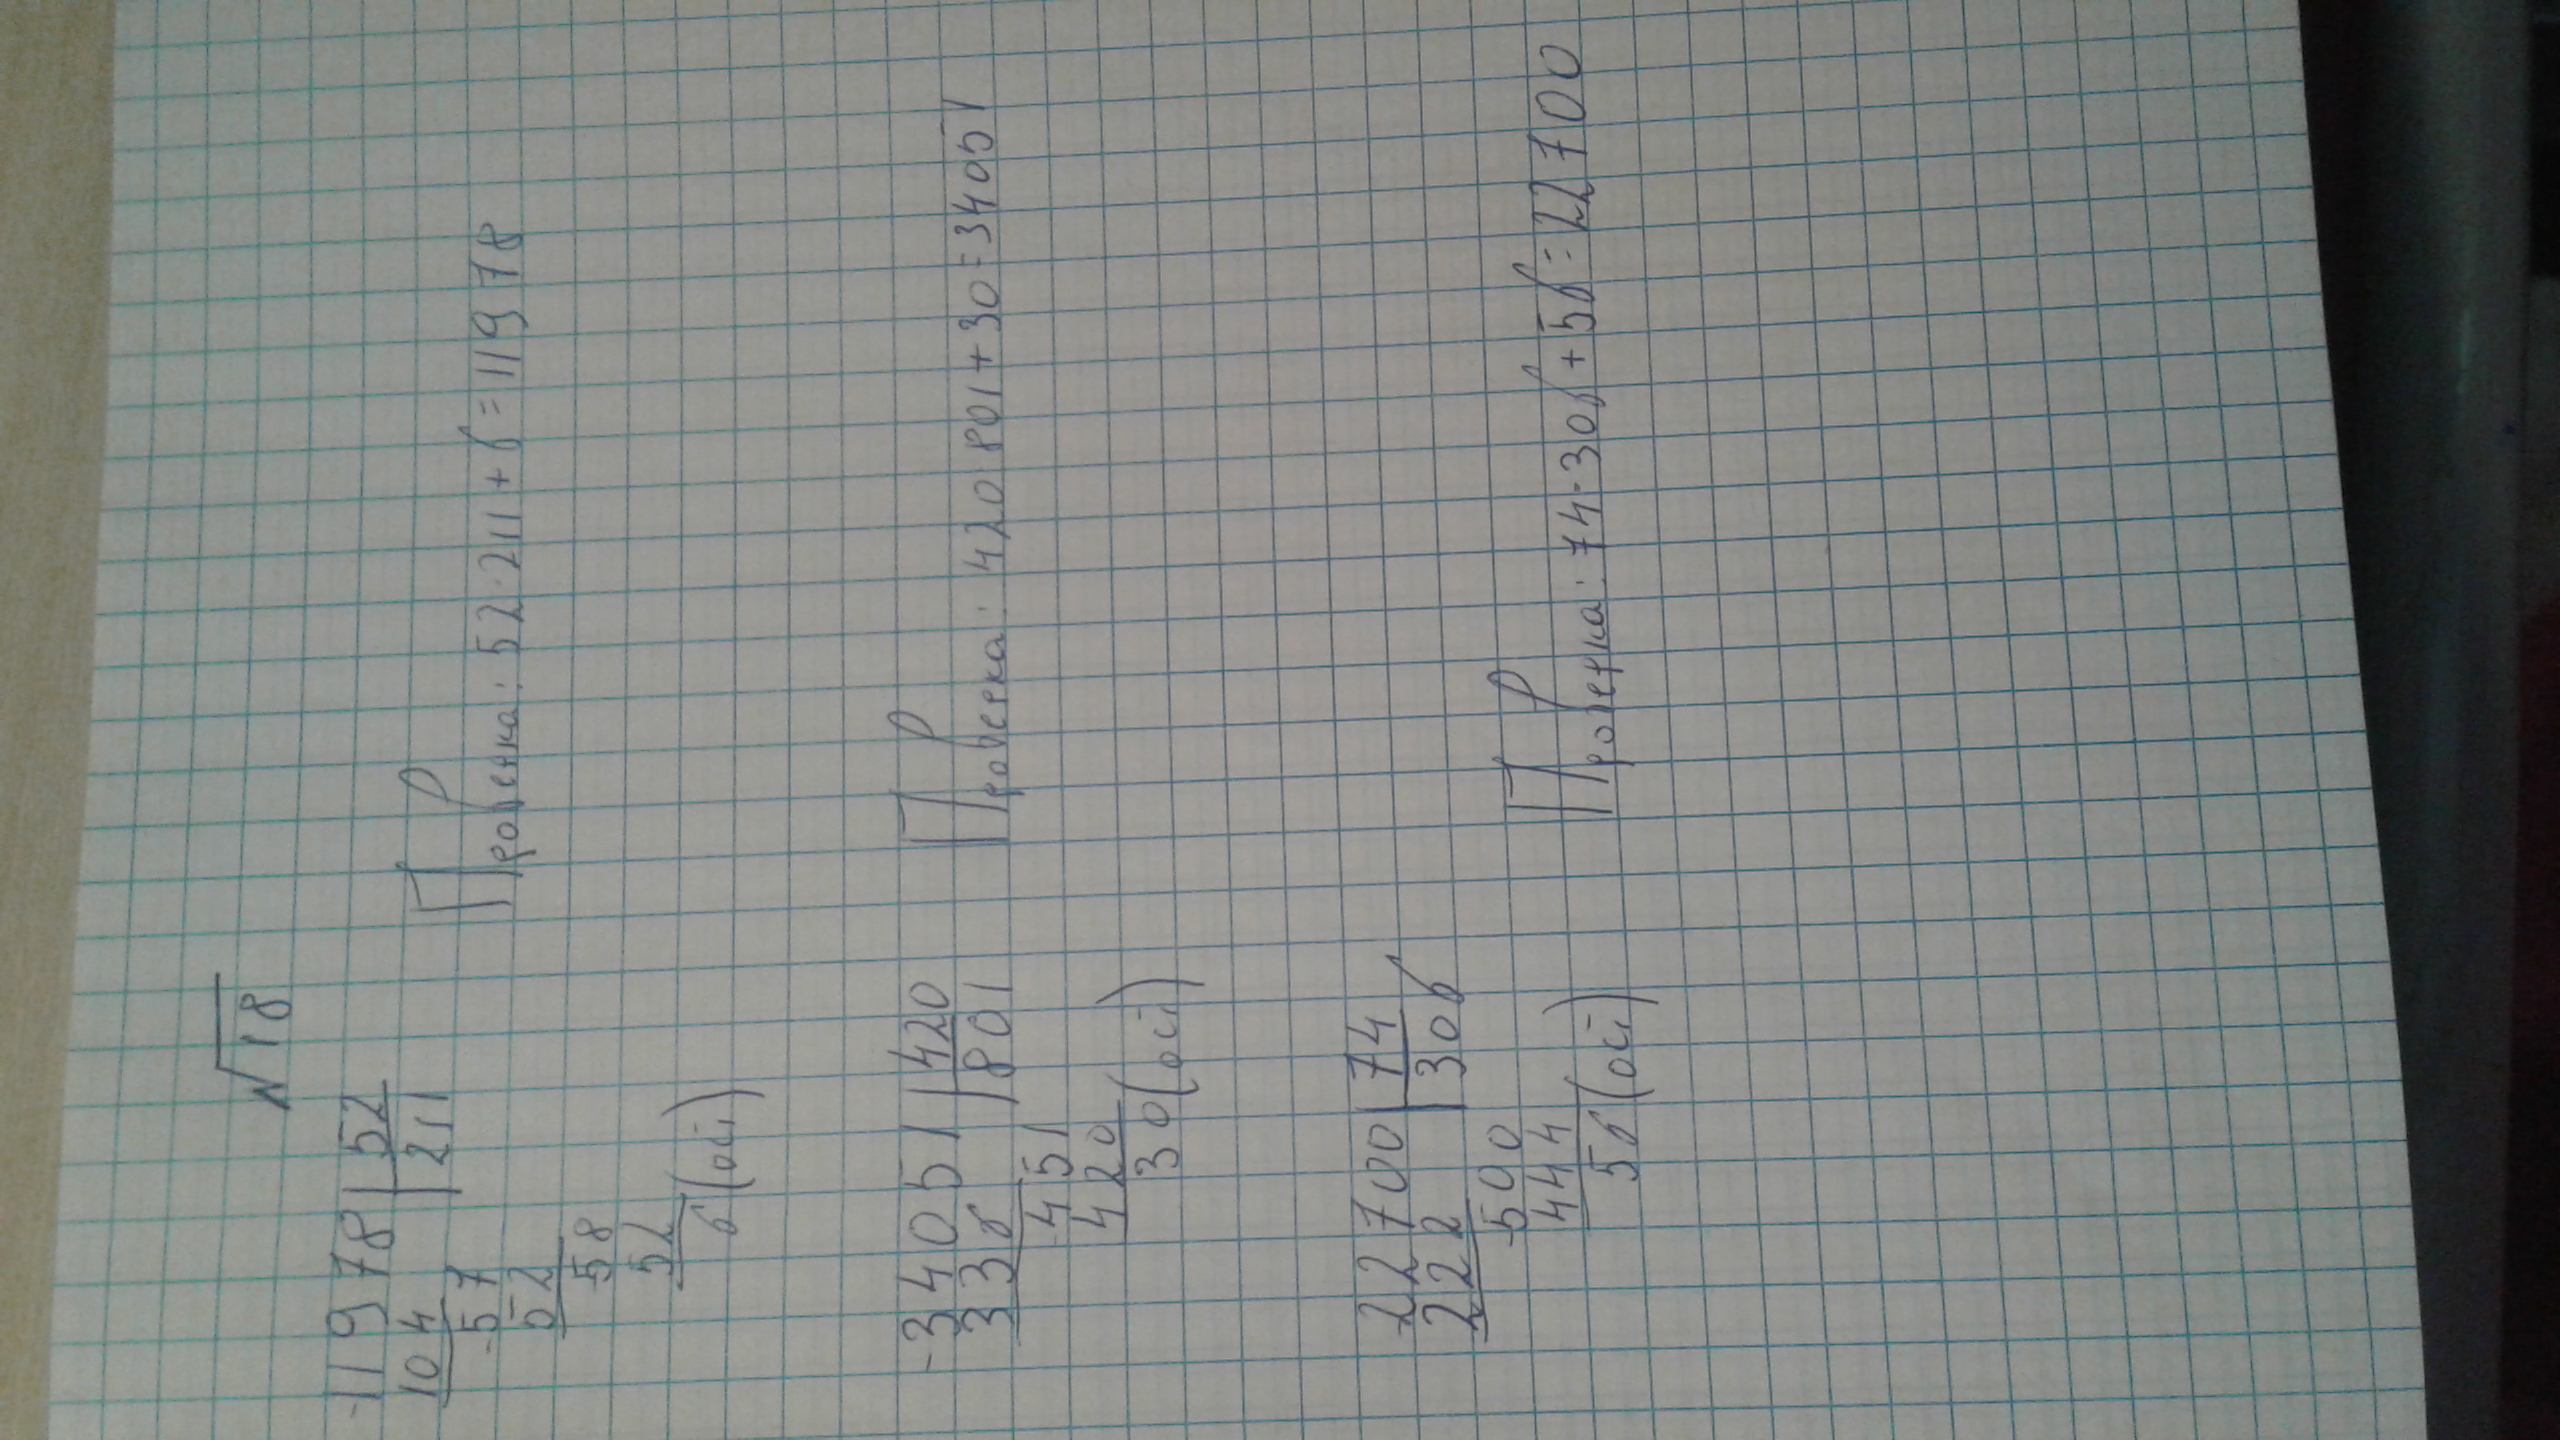 √18
-11978|52
104 |211
-57
52
-58
52
6(ост)
Проверка: 52·211+6=11978
-34051|420
336 |801
-451
420
30(ост)
Проверка: 420·801+30=34051
-22700|74
222 |306
-500
444
56(ост)
Проверка: 74·306+56=22700